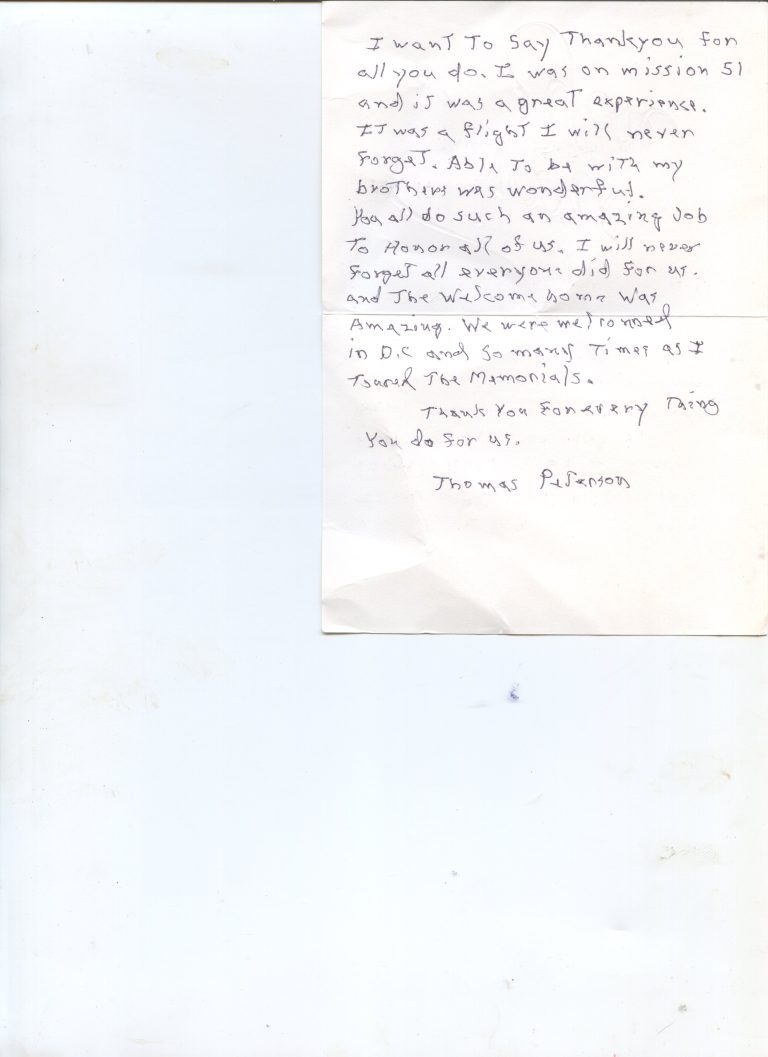 I want To Say Thankyou for
all you do. I was on mission 51
and it was a great experience.
IT was a flight I will never
Forget. Able To be with my
brothers was wonderful.
You all do such an amazing Job
To Honor all of us. I will never
Forget all everyone did For us.
and The Welcome home was
Amazing. We were welcomed
in D.C and so many Times as I
Toured The Memorials.
Thank You For every Thing
You do for us.
Thomas Peterson